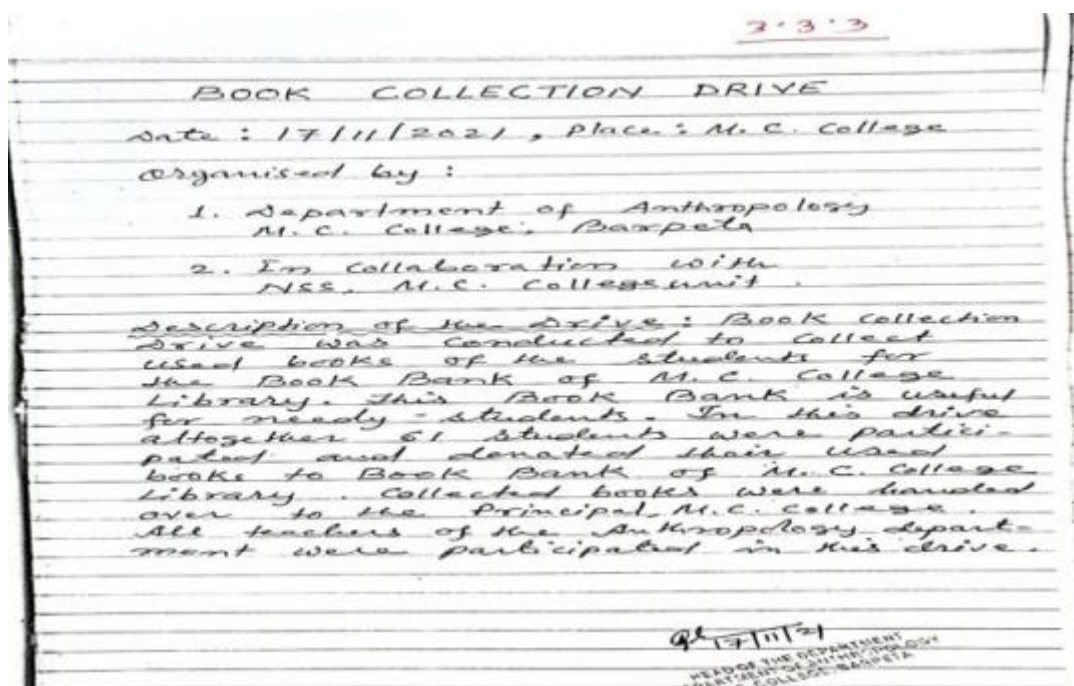 3.3.3
BOOK COLLECTION DRIVE
Date : 17/11/2021, Place : M. C. College
Organised by :
1. Department of Anthropology
M. C. College, Barpeta
2. In Collaboration with
NSS, M. C. College unit.
Description of the Drive : Book Collection
Drive was conducted to collect
used books of the students for
the Book Bank of M. C. College
Library. This Book Bank is useful
for needy-students. In this drive
altogether 61 students were partici-
pated and donated their used
books to Book Bank of M. C. College
Library. Collected books were handed
over to the Principal, M. C. College.
All teachers of the Anthropology depart-
ment were participated in this drive.
17/11/21
HEAD OF THE DEPARTMENT
DEPARTMENT OF ANTHROPOLOGY
COLLEGE, BARPETA